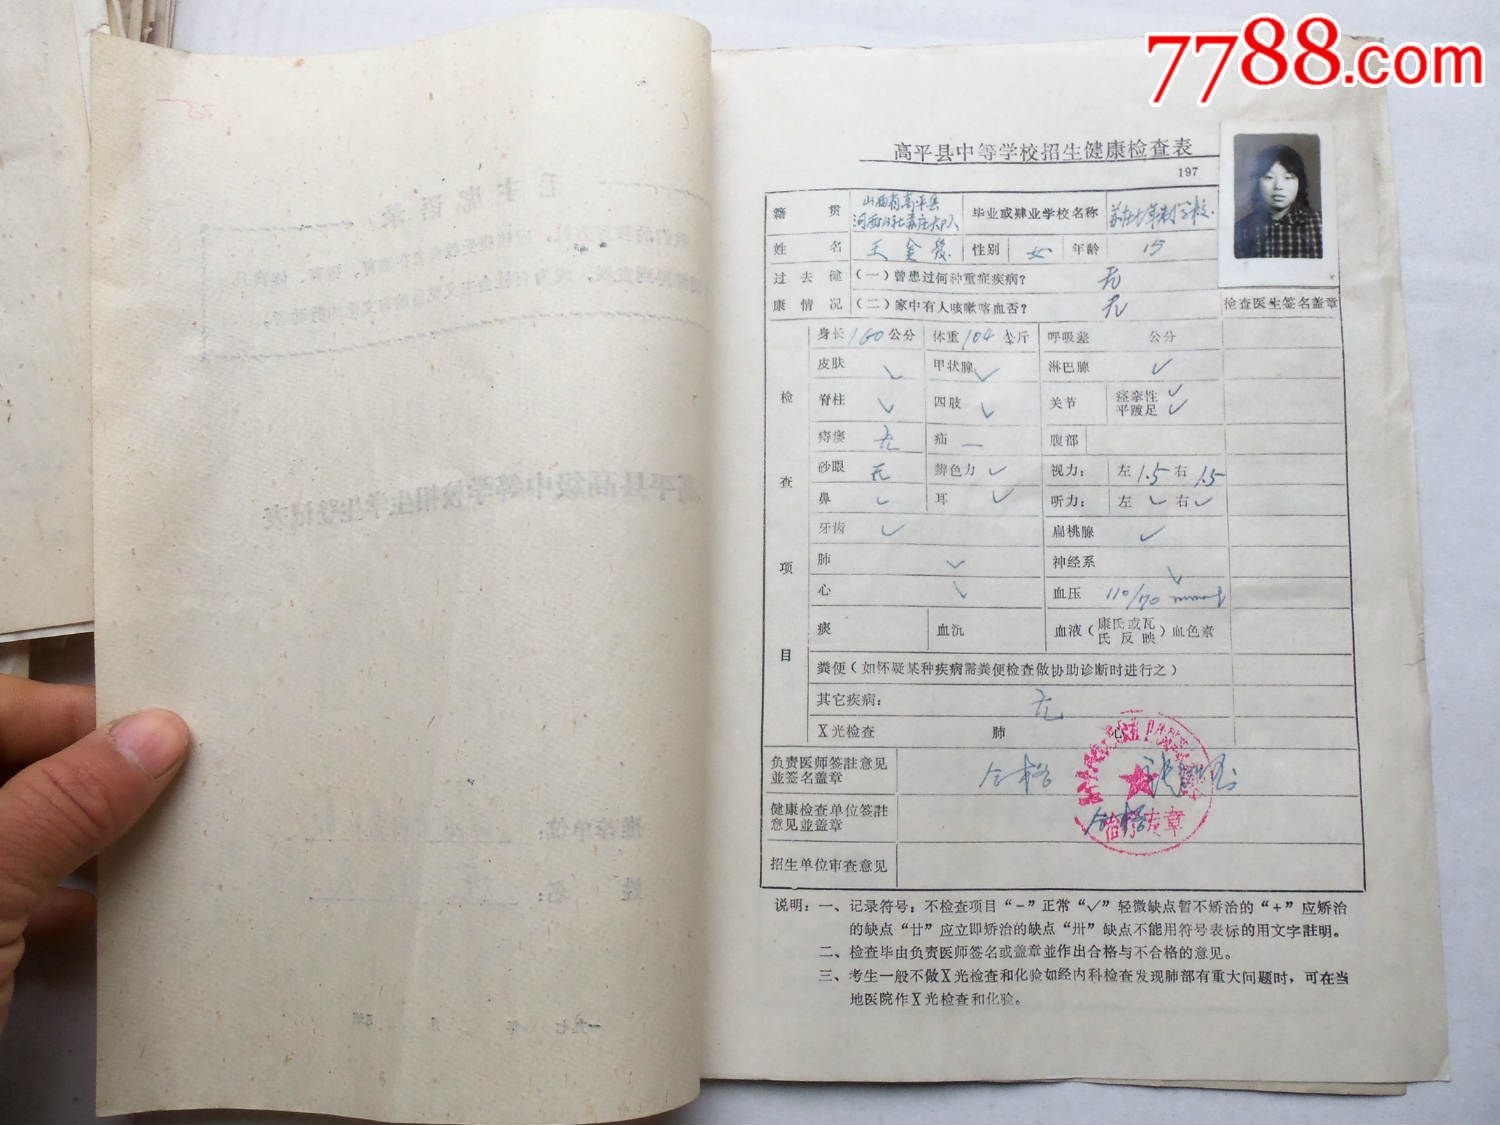 7788.com
高平县中等学校招生健康检查表
197
籍贯 山西省高平县 毕业或肄业学校名称 苏庄七年制学校
河西公社苏庄大队
姓名 王金 性别 女 年龄 15
过去健 (一)曾患过何种重症疾病? 无
康情况 (二)家中有人咳嗽喀血否? 无 检查医生签名盖章
检查项目
身长 160 公分 体重 104 斤 呼吸差 公分
皮肤 ✓ 甲状腺 ✓ 淋巴腺 ✓
脊柱 ✓ 四肢 ✓ 关节 痉挛性 ✓
平蹠足 ✓
痔瘘 无 疝 一 腹部
砂眼 无 辨色力 ✓ 视力: 左 1.5 右 1.5
鼻 ✓ 耳 ✓ 听力: 左 ✓ 右 ✓
牙齿 ✓ 扁桃腺 ✓
肺 ✓ 神经系 ✓
心 ✓ 血压 110/70
痰 血沉 血液(康氏或瓦氏反映)血色素
粪便(如怀疑某种疾病需粪便检查做协助诊断时进行之)
其它疾病: 无
X光检查 肺 心
负责医师签註意见
並签名盖章 合格
健康检查单位签註
意见並盖章 合格
招生单位审查意见
说明:一、记录符号:不检查项目“-”正常“✓”轻微缺点暂不矫治的“+”应矫治
的缺点“廿”应立即矫治的缺点“卅”缺点不能用符号表标的用文字註明。
二、检查毕由负责医师签名或盖章並作出合格与不合格的意见。
三、考生一般不做X光检查和化验如经内科检查发现肺部有重大问题时,可在当
地医院作X光检查和化验。